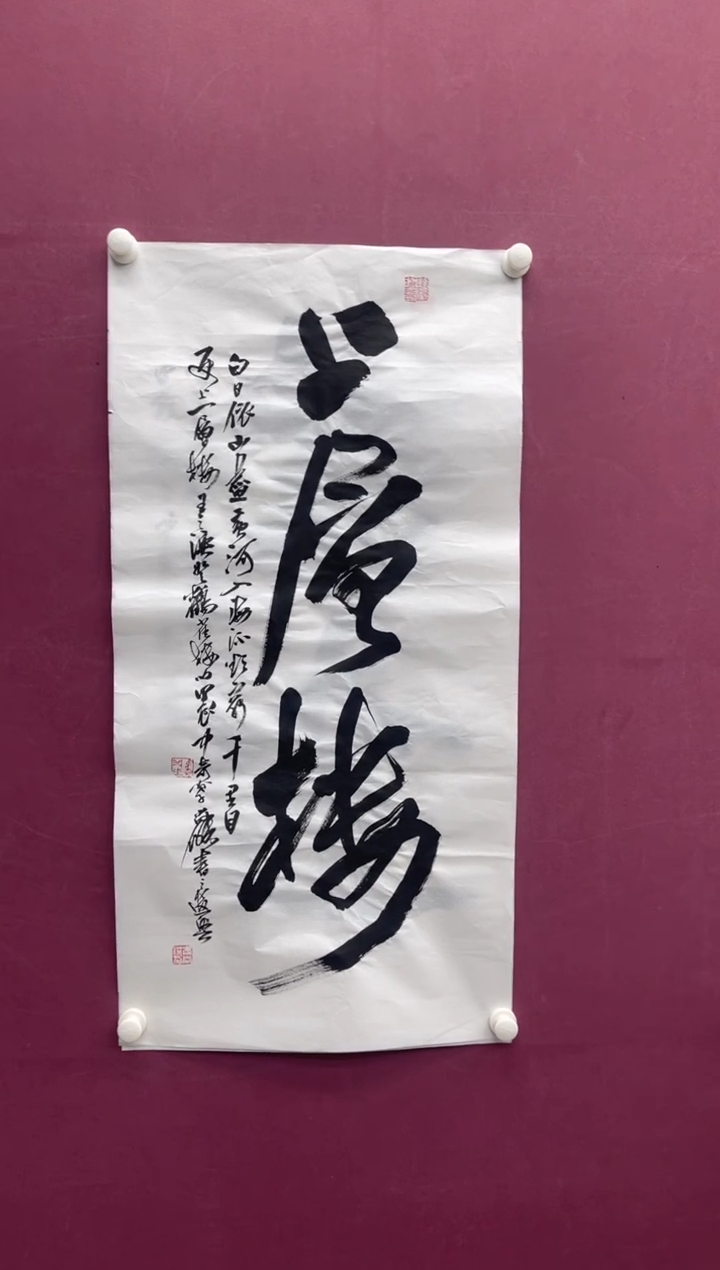 上层楼
白日依山尽黄河入海流欲穷千里目
更上一层楼王之涣登鹳雀楼